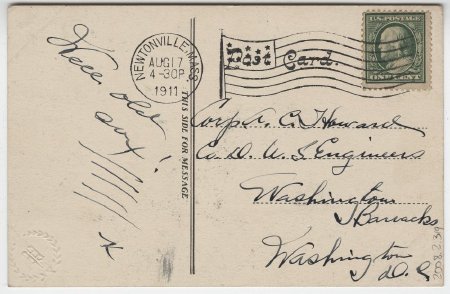 NEWTONVILLE, MASS.
AUG 17
4-30 P
1911
Post Card.
U.S. POSTAGE
ONE CENT
THIS SIDE FOR MESSAGE
old
!
Corp'r. C. Howard
Co. D. U S Engineers
Washington
Barracks
Washington
D.C.
2008.2.39